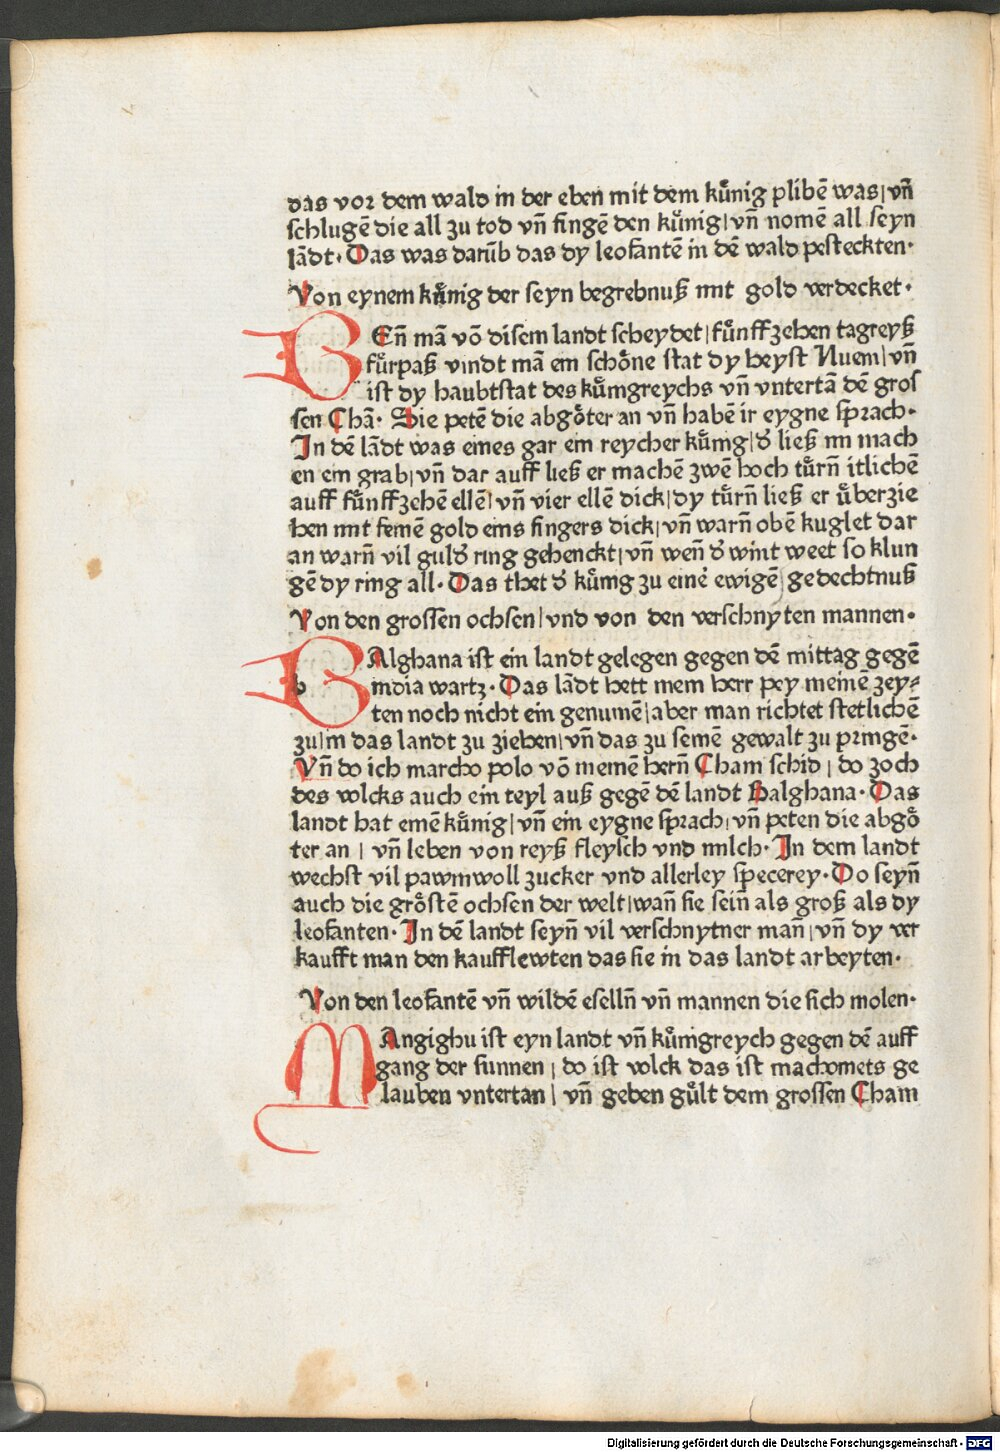 das vor dem wald in der eben mit dem kůnig plibē was|vñ
schlugē die all zu tod vñ fingē den kůnig|vñ nomē all seyn
lādt· Das was darūb das dy leofantē in dē wald pesteckten·
Von eynem kůnig der seyn begrebnuß mit gold verdecket·
BEñ mā vō disem landt scheydet|fůnffzehen tagreyß
fůrpaß vindt mā ein schône stat dy heyst Nuem|vñ
ist dy haubtstat des kůnigreychs vñ vntertā dē gros
sen Chā· Sie petē die abgôter an vñ habē ir eygne sprach·
In dē lādt was eines gar ein reycher kůnig|d' ließ im mach
en ein grab|vñ dar auff ließ er machē zwē hoch tůrñ itlichē
auff fůnffzehē ellē|vñ vier ellē dick|dy tůrñ ließ er ůberzie
hen mit feinē gold eins fingers dick|vñ warñ obē kuglet dar
an warñ vil guld' ring gehenckt|vñ weñ d' wint weet so klun
gē dy ring all· Das thet d' kůnig zu einē ewigē gedechtnuß
Von den grossen ochsen|vnd von den verschnyten mannen·
b
BAlghana ist ein landt gelegen gegen dē mittag gegē
india wartz· Das lādt hett mein herr pey meinē zey⸗
ten noch nicht ein genumē|aber man richtet stetlichē
zu|in das landt zu ziehen|vñ das zu seinē gewalt zu pringē·
Vñ do ich marcho polo vō meinē herñ Cham schid|do zoch
des volcks auch ein teyl auß gegē dē landt Balghana· Das
landt hat einē kůnig|vñ ein eygne sprach|vñ peten die abgô
ter an|vñ leben von reyß fleysch vnd milch· In dem landt
wechst vil pawmwoll zucker vnd allerley specerey· Do seyñ
auch die grôstē ochsen der welt|wañ sie seiñ als groß als dy
leofanten· In dē landt seyñ vil verschnytner mañ|vñ dy ver
kaufft man den kaufflewten das sie in das landt arbeyten·
Von den leofantē vñ wildē eselln̄ vñ mannen die sich molen·
MAngighu ist eyn landt vñ kůnigreych gegen dē auff
gang der sunnen|do ist volck das ist machomets ge
lauben vntertan|vñ geben gůlt dem grossen Cham
Digitalisierung gefördert durch die Deutsche Forschungsgemeinschaft - DFG